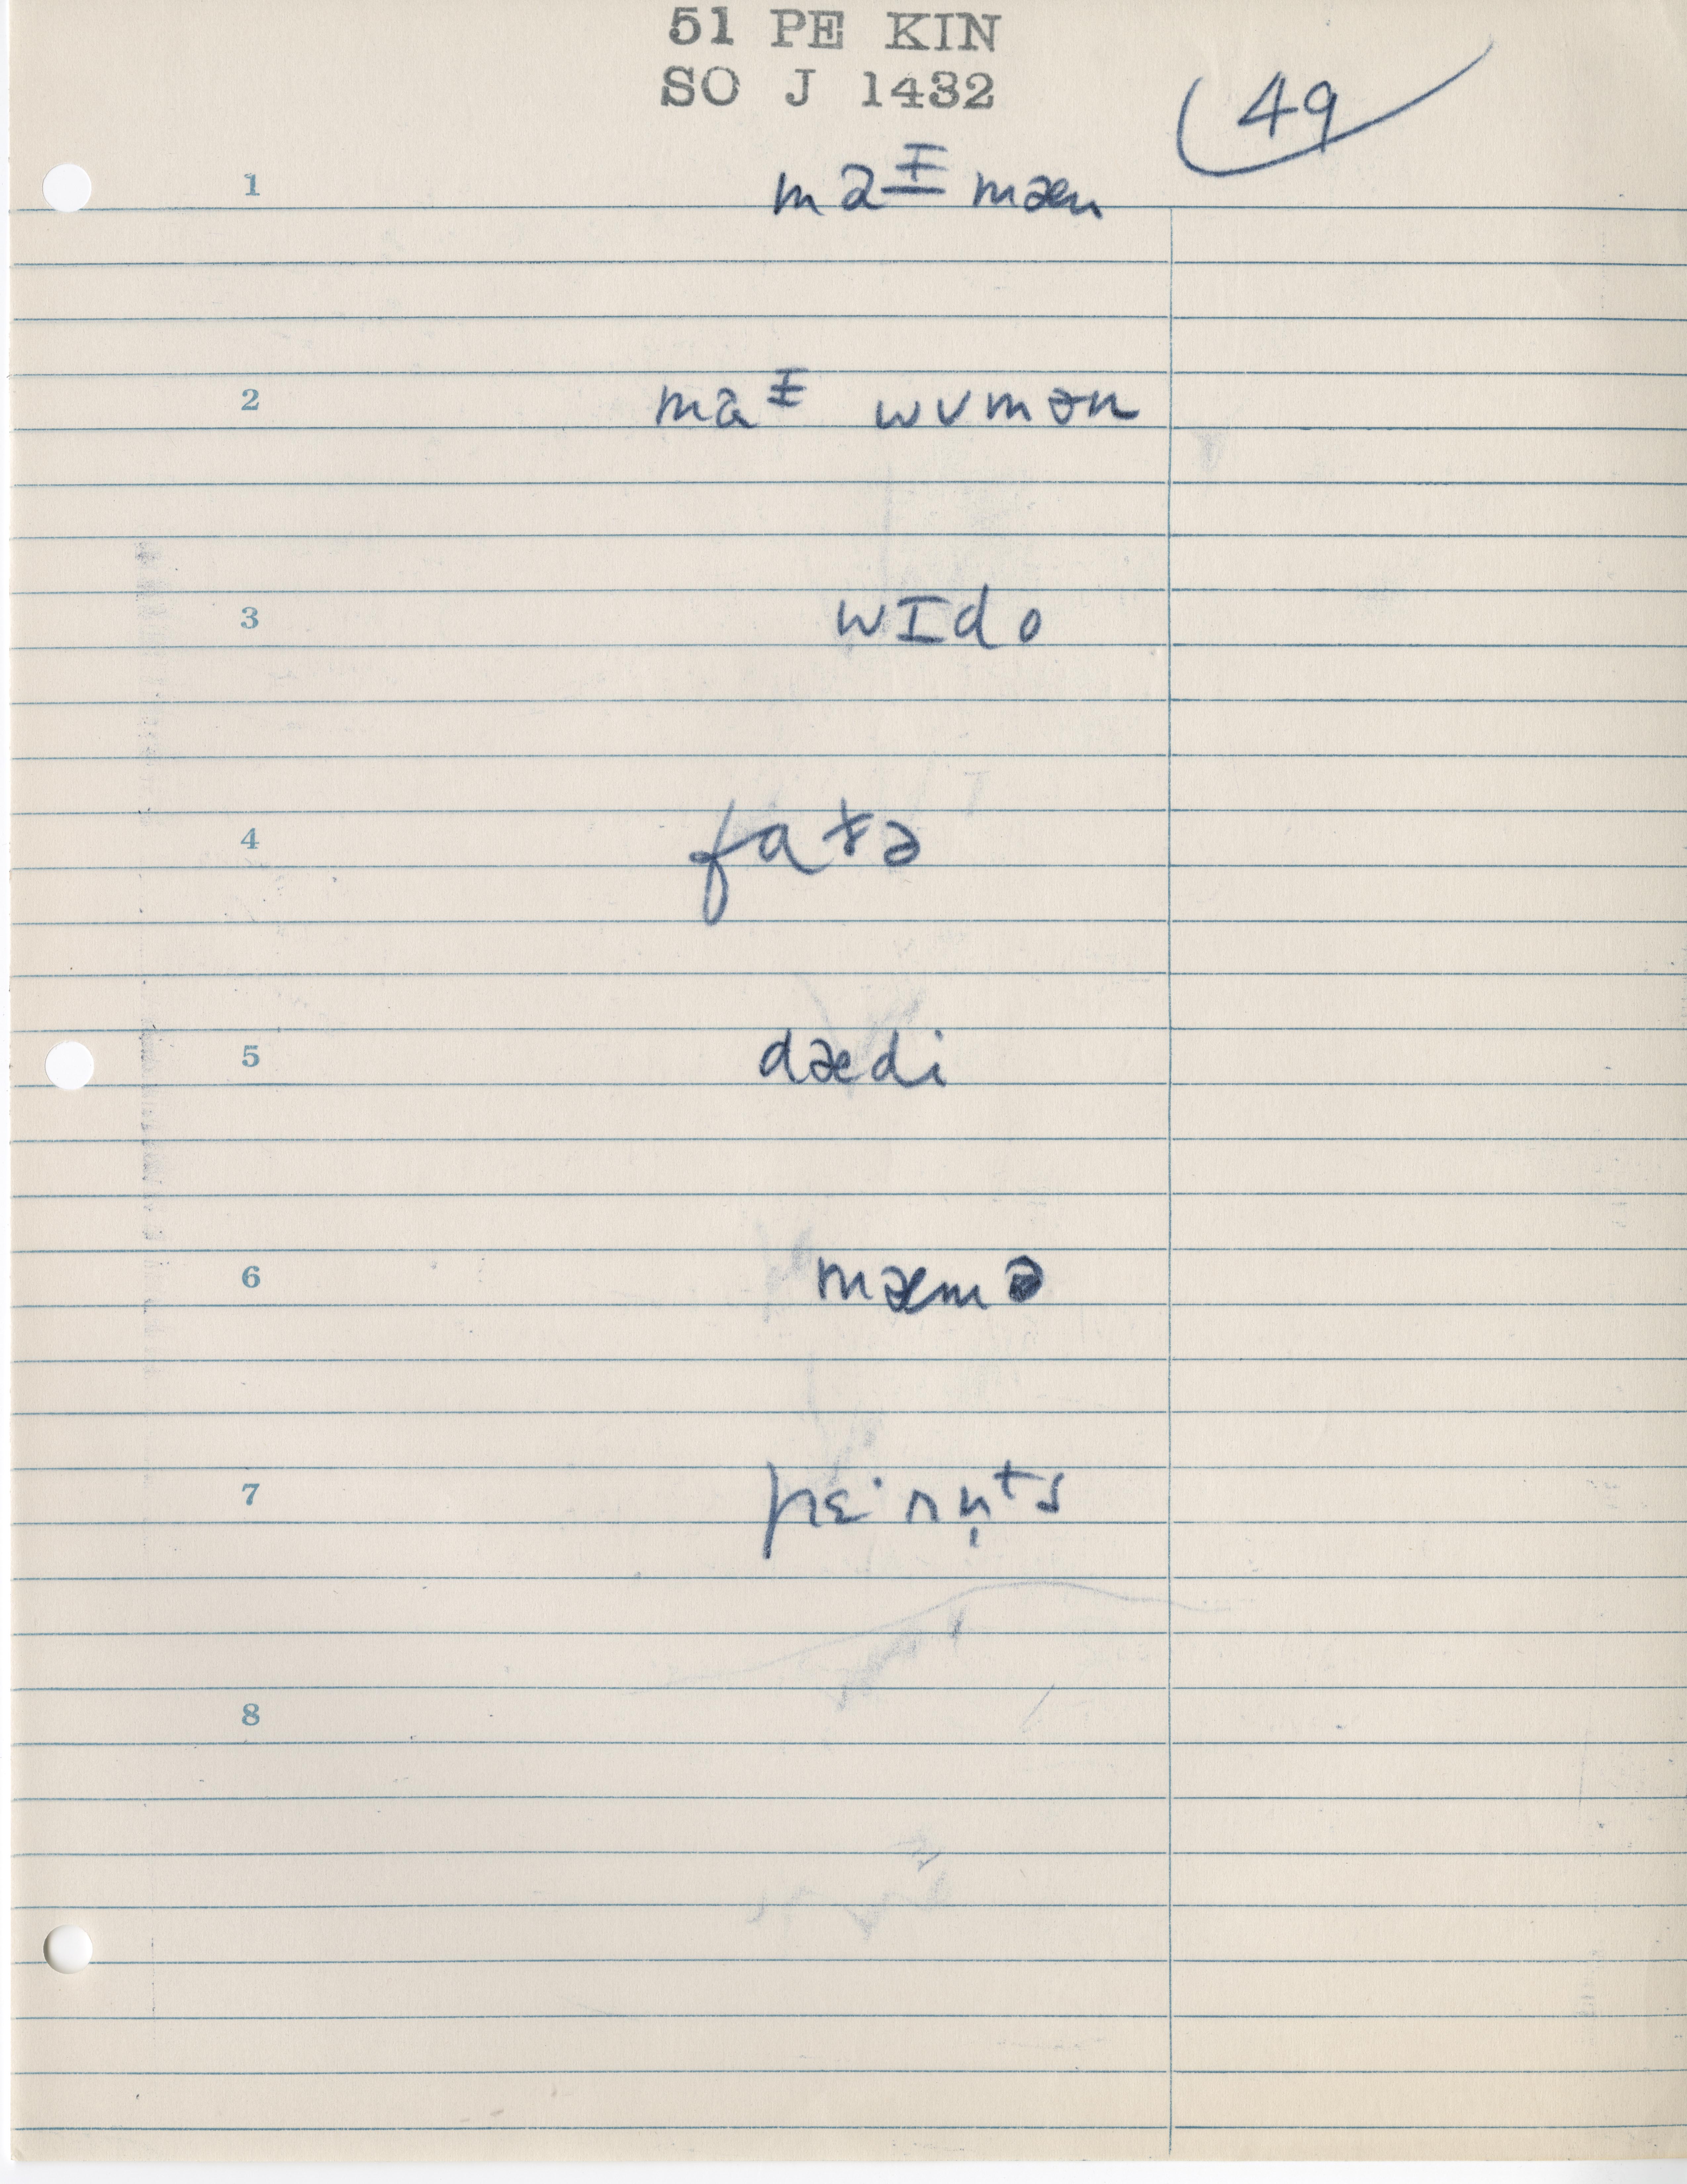 51 PE KIN
SO J 1432
49
1 maᵻ mæn
2 maᵻ wʊmən
3 wɪdo
4 fɑt̬ə
5 dædi
6 mæmə
7 pɛ·rn̩ᵗs
8